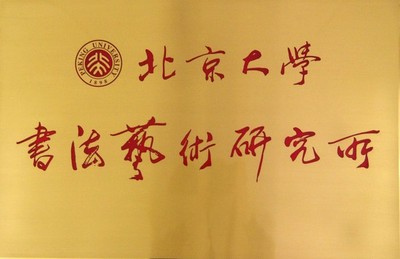 PEKING UNIVERSITY
1898
北京大學
書法藝術研究所